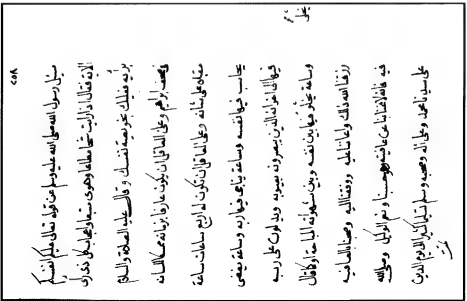 ٢٥٨
سئل رسول الله صلى الله عليه وسلم عن قوله تعالى عليكم انفسكم
الآية فقال اذا رأيت شحا مطاعا وهوى متبعا واعجاب كل ذي رأي
برأيه فعليك بخويصة نفسك وقال عليه الصلاة والسلام
في صحف ابراهيم وعلى العاقل ان يكون عارفا بزمانه ممسكا للسانه
مقبلا على شانه وعلى العاقل ان تكون له اربع ساعات ساعة
يحاسب فيها نفسه وساعة يناجي فيها ربه وساعة يفضي
فيها الى اخوانه الذين يبصرونه بعيوبه ويدلونه على ربه
وساعة يخلو فيها بين نفسه وبين شهواته المباحة او كما قال
رزقنا الله ذلك واعاننا عليه ووفقنا اليه وصحبنا بالعافية
فيه فانه لا غنا بنا عن عافيته وهو حسبنا ونعم الوكيل وصلى الله
على سيدنا محمد وعلى آله وصحبه وسلم تسليما كثيرا الى يوم الدين
تمت